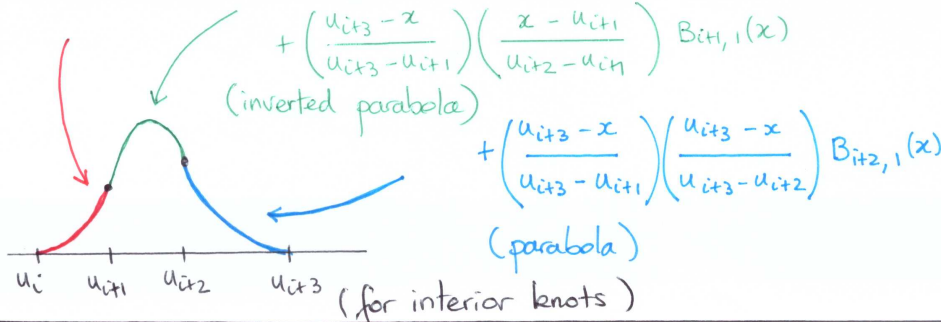 + ( (u_{i+3} - x) / (u_{i+3} - u_{i+1}) ) ( (x - u_{i+1}) / (u_{i+2} - u_{i+1}) ) B_{i+1, 1}(x)
(inverted parabola)
+ ( (u_{i+3} - x) / (u_{i+3} - u_{i+1}) ) ( (u_{i+3} - x) / (u_{i+3} - u_{i+2}) ) B_{i+2, 1}(x)
(parabola)
u_i u_{i+1} u_{i+2} u_{i+3}
(for interior knots)